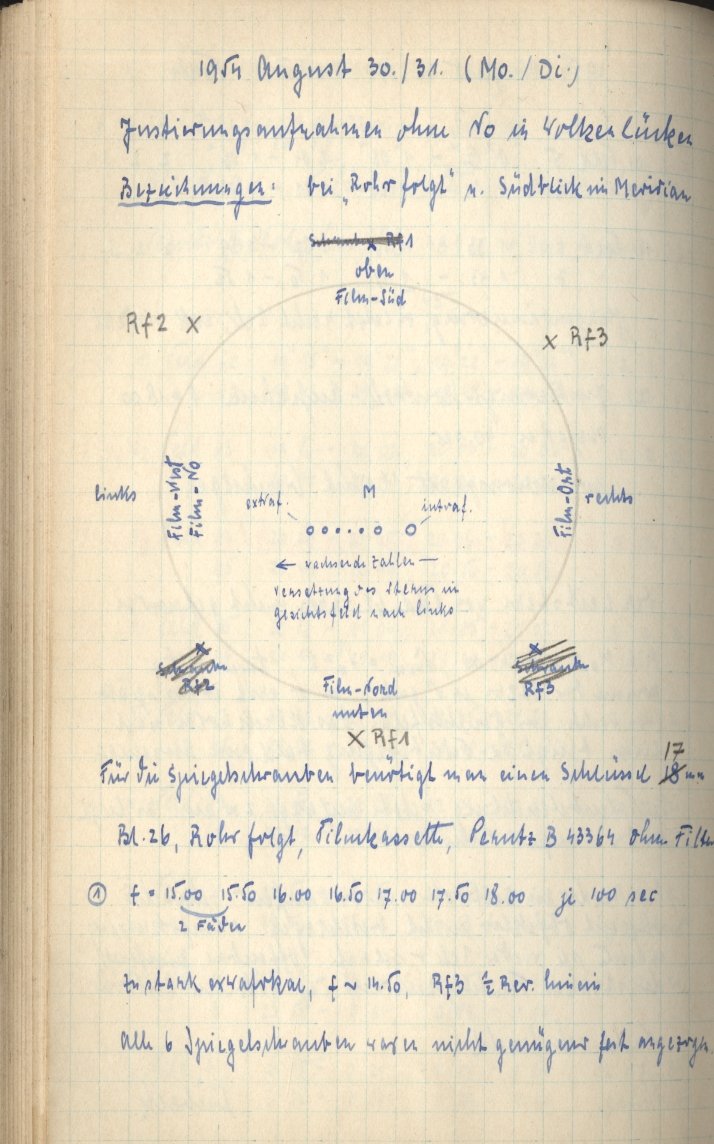 1954 August 30./31. (Mo./Di.)
Justierungsaufnahmen ohne No in Wolkenlücken
Bezeichnungen: bei "Rohr folgt" u. Südblick im Meridian
Rf1
oben
Film-Süd
Rf2 X
X Rf3
links
Film-West
Film-No
M
extraf.
intraf.
Film-Ost
rechts
← wachsende Zahlen —
Versetzung des Sterns im
Gesichtsfeld nach links
x
Rf2
x
Schraube
Rf3
Film-Nord
unten
X Rf1
17
Für die Spiegelschrauben benötigt man einen Schlüssel 18 mm
Bl. 26, Rohr folgt, Filmkassette, Perutz B 43364 ohne Filter
① f = 15.00 15.50 16.00 16.50 17.00 17.50 18.00 je 100 sec
2 Fäden
Zu stark extrafokal, f ~ 14.50, Rf3 ½ Rev. hinein
Alle 6 Spiegelschrauben waren nicht genügend fest angezogen